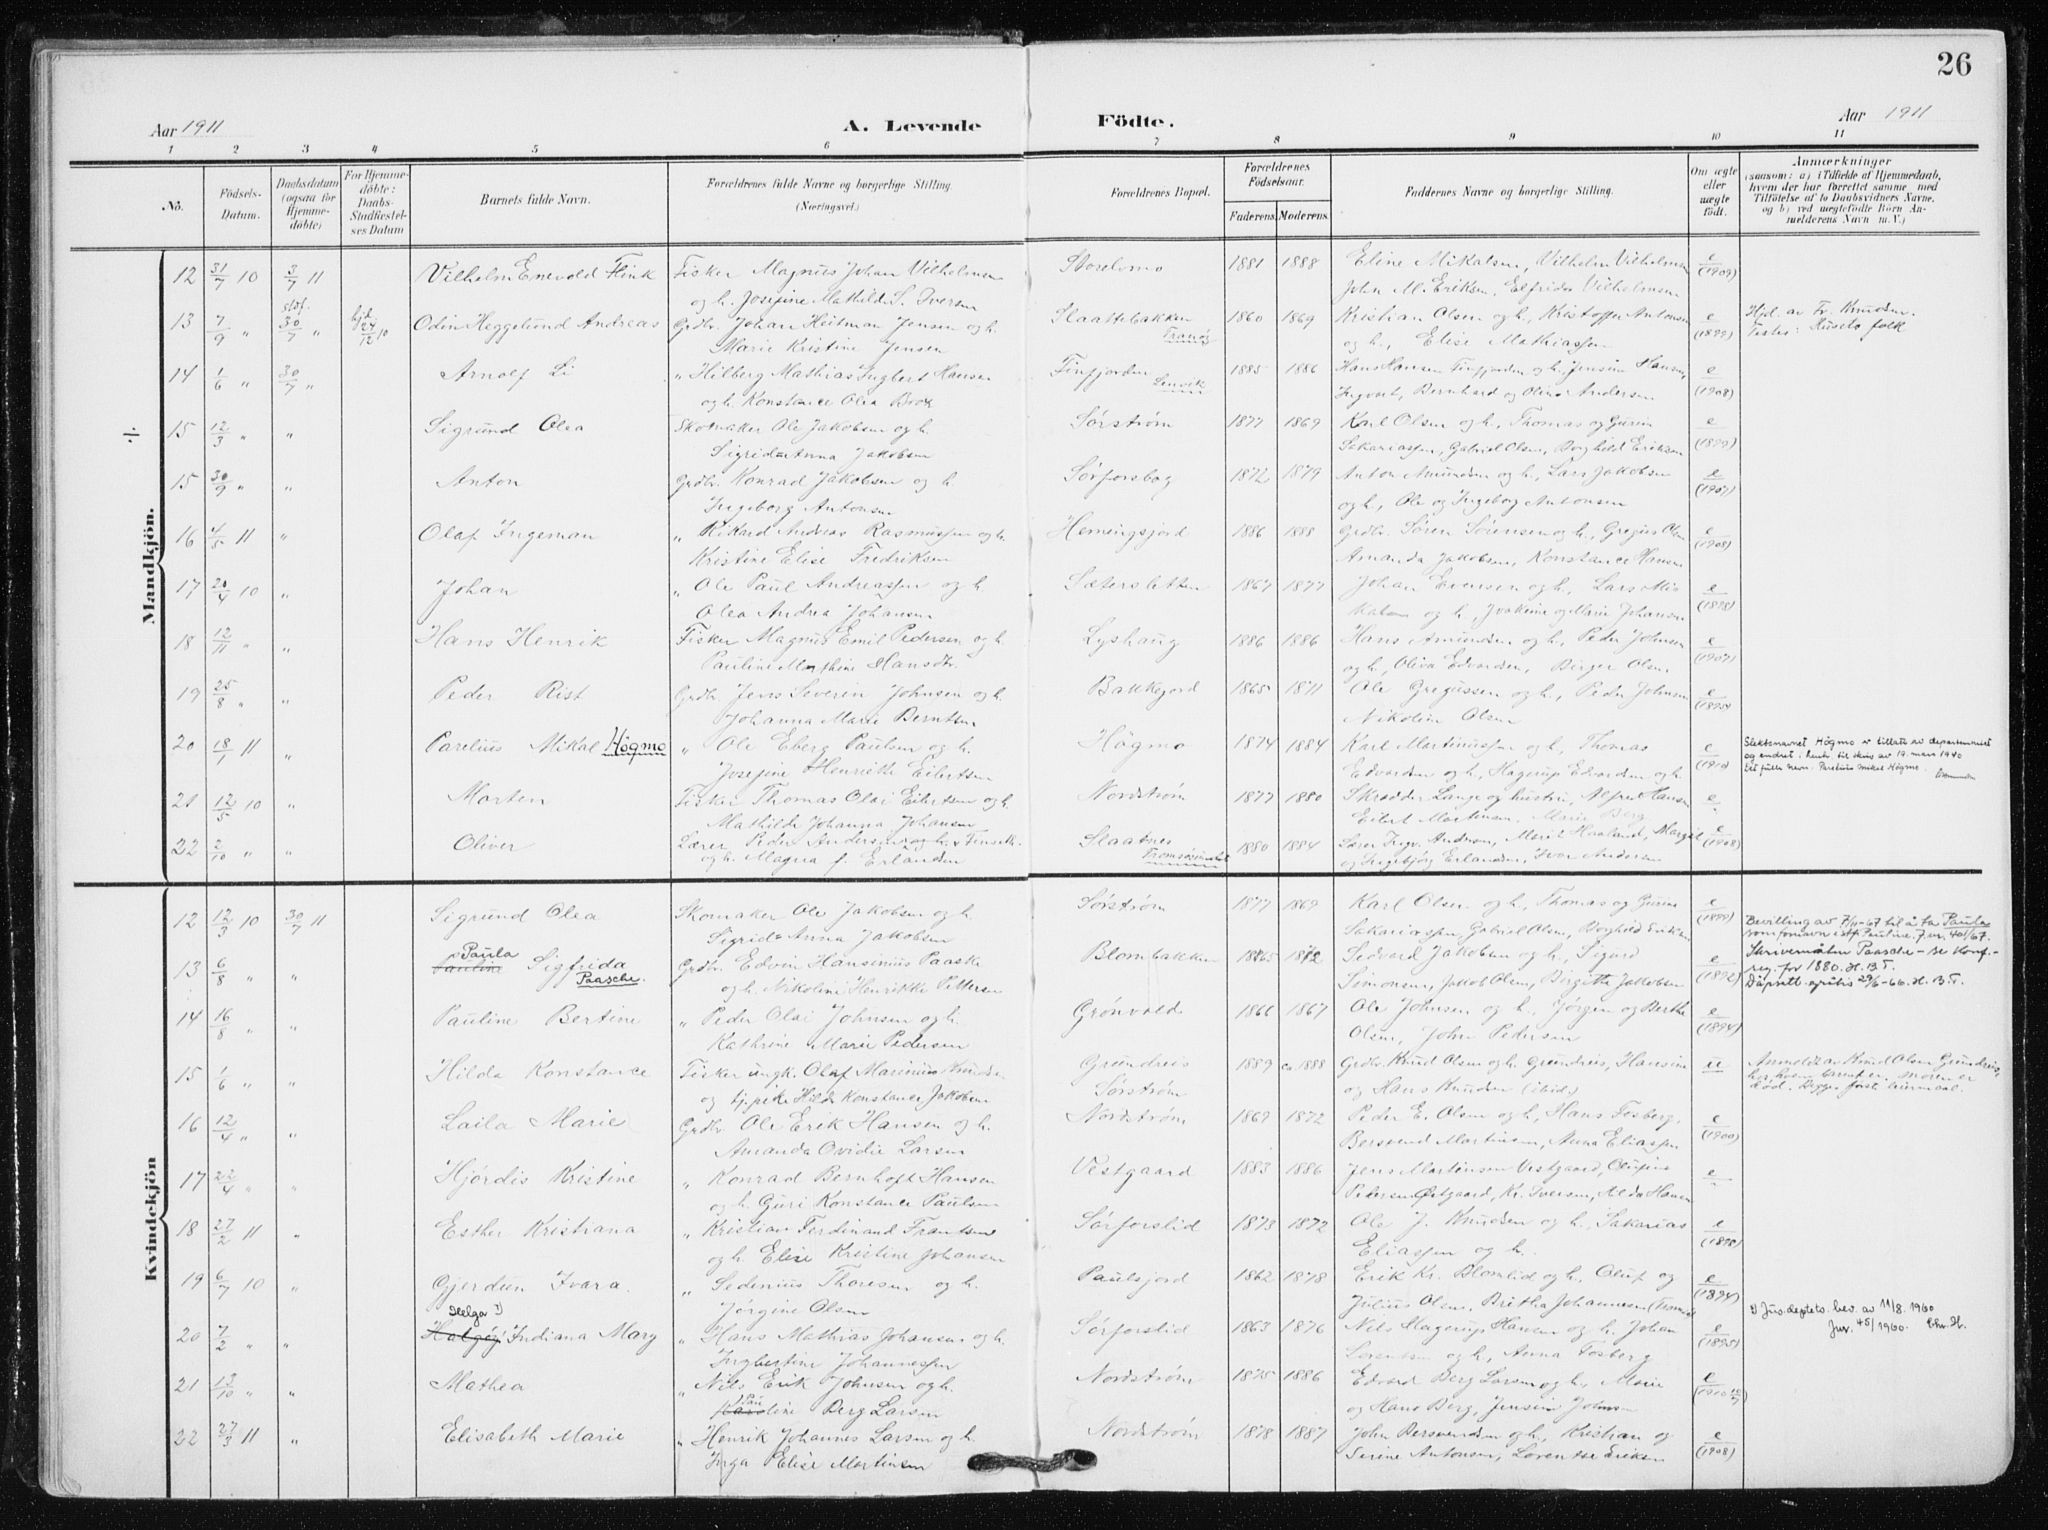 26
Aar 1911 A. Levende Födte. Aar 1911
1 2 3 4 5 6 7 8 9 10 11
No. Födsels-Datum. Daabsdatum (ogsaa for Hjemmedöbte) For Hjemmedöbte: Daabs-Stadfæstelses Datum Barnets fulde Navn. Forældrenes fulde Navne og borgerlige Stilling. (Næringsvei.) Forældrenes Bopæl. Forældrenes Födselsaar. Faderens. Moderens. Faddernes Navne og borgerlige Stilling. Om ægte eller uægte födt. Anmærkninger (saasom: a) i Tilfælde af Hjemmedaab, hvem der har forrettet samme, med Tilföielse af to Daabsvidners Navne, og b) ved uægtefödte Börn Anmelderens Navn m. V.)
Mandkjön.
12 31/7 10 3/7 11 Vilhelm Enevold Flink Fisker Magnus Johan Vilhelmsen Storelvmo 1881 1888 Eline Mikalsen, Vilhelm Vilhelmsen e
og h. Josefine Mathilde S. Iversen John M. Eriksen, Elfrida Vilhelmsen (1909)
13 7/9 " stdf. 30/7 " hjd. 24/12 10 Odin Heggelund Andreas Grdbr. Johan Heitman Jensen og h. Slaattebakken 1860 1869 Kristian Olsen og h, Kristoffer Antonsen e Hjd. av Fr. Knudsen.
Marie Kristine Jensen Tranøy og h., Elise Mathiassen (1899) Testes: Husets folk
14 1/6 " 30/7 " Arnolf Li " Hilberg Mathias Ingbert Hansen Finfjorden 1885 1886 Hans Hansen Finfjorden og h. Jensine Hansen, e
og h. Konstance Olea Brox Lenvik Ingvart, Bernhard og Olina Andersen (1908)
÷ 15 12/3 " " Sigrund Olea Skomaker Ole Jakobsen og h. Sørstrøm 1877 1869 Karl Olsen og h., Thomas og Gurin e
Sigrida Anna Jakobsen Sakariassen, Gabriel Olsen, Borghild Eriksen (1899)
15 30/9 " " Anton Grdbr. Konrad Jakobsen og h. Sørforsbog 1872 1879 Anton Amundsen og h., Lars Jakobsen e
Ingeborg Antonsen og h., Ole og Ingeborg Antonsen (1907)
16 4/5 11 " Olaf Ingeman " Rikard Andreas Rasmussen og h. Hemingsfjord 1886 1888 Grdbr. Søren Sørensen og h., Gregus Olsen e
Kristine Elise Fredriksen Amanda Jakobsen, Konstance Hansen (1908)
17 20/4 10 " Johan " Ole Paul Andreassen og h. Sætersletten 1867 1877 Johan Evensen og h., Lars Mi- e
Olea Andrea Johansen kalsen og h., Joakine og Marie Johansen (1898)
18 12/11 " " Hans Henrik Fisker Magnus Emil Pedersen og h. Lyshaug 1886 1886 Hans Amundsen og h., Peder Johnsen e
Pauline Marthine Hansdtr. og h, Oliva Edvardsen, Birger Olsen (1907)
19 25/8 " " Peder Rist Grdbr Jens Severin Johnsen og h. Bakkejord 1865 1871 Ole Gregussen og h., Peder Johnsen e
Johanna Marie Berntsen Nikoline Olsen (1895)
20 18/1 11 " Parelius Mikal Högmo " Ole Eberg Paulsen og h. Högmo 1874 1884 Karl Martinussen og h., Thomas e Slektsnavnet Högmo er tillatt av departementet
Josefine Henrikke Eilertsen Edvardsen og h., Hagerup Edvardsen og h. (1910) og endret i henh. til skriv av 19. mars 1940
Ett fullt navn: Parelius Mikal Högmo.
21 12/5 10 " Morten Fisker Thomas Olai Eilertsen og h. Nordstrøm 1877 1880 Skrædder Lange og hustru, Alfred Hansen e
Mathilde Johanna Johansen Eilert Martinsen, Marie Berg
22 2/10 " " Oliver Lærer Peder Andersen og h. Slaatnes 1880 1884 Lærer Ingv. Andersen, Marit Haaland, Margit e
og h. Magna f. Erlandsen Tromsøsundet og Ingebjørg Erlandsen, Ivar Andersen (1908)
Kvindekjön
12 12/3 10 30/7 11 Sigrund Olea Skomaker Ole Jakobsen og h. Sørstrøm 1877 1869 Karl Olsen og h., Thomas og Gurine e
Sigrida Anna Jakobsen Sakariassen, Gabriel Olsen, Borghild Eriksen (1899) Bevilling av 7/11-67 til å ta Paula
Paula som fornavn istf. Pauline. J.nr. 401/67.
13 6/8 " " Pauline Sigfrida Grdbr. Edvin Hansinius Paaske Blombakken 1865 1872 Sedvard Jakobsen og h., Sigurd e Skrivemåten Paasche - se Konf.-
Paasche. og h. Nikoline Henrikke Pettersen Simonsen, Jakob Olsen, Birgitte Jakobsen (1892) reg. for 1880. H.B.T.
Dåpsatt. gratis 29/6-66. H.B.T.
14 16/8 " " Pauline Bertine " Peder Olai Johnsen og h. Grönvold 1866 1867 Ole Johnsen og h., Jørgen og Berthe e
Kathrine Marie Pedersen Olsen, John Pedersen (1894)
15 1/6 " " Hilda Konstance Fisker ungk. Olaf Marinius Knudsen Grundreis 1889 ca 1888 Grdbr. Knud Olsen og h. Grundreis, Hansine u Anmeldt av Knud Olsen Grundreis,
og tj. pike Hilda Konstance Jakobsen Sørstrøm og Hans Knudsen (ibid) moren er
død. Begges først leiermaal.
16 12/4 " " Laila Marie Grdbr. Ole Erik Hansen og h. Nordstrøm 1869 1872 Peder E. Olsen og h., Hans Fosberg, e
Amanda Ovidie Larsen Bersvend Martinsen, Anna Eliassen (1900)
17 22/4 " " Hjördis Kristine " Konrad Bernhoft Hansen Vestgaard 1883 1886 Jens Martinsen Vestgaard, Olufine e
og h. Guri Konstance Paulsen Petersen Østgaard, Kr. Iversen, Alda Hansen
18 27/2 11 " Esther Kristiana " Kristian Ferdinand Frantsen Sørforslid 1873 1872 Ole J. Knudsen og h., Sakarias e
og h. Elise Kristine Johansen Eliassen og h. (1898)
19 6/7 10 " Gjerdun Ivara. " Sedenius Thoresen og h. Paulsfjord 1862 1878 Erik Kr. Blomlid og h., Oluf og e
Jørgine Olsen Julius Olsen, Britha Johannesen (Tromsø) (1894)
Helga 1) 1) Jus. deptets. bev. av 11/8. 1960
20 7/2 " " Halgöy Indiana Mary " Hans Mathias Johansen og h. Sørforslid 1863 1876 Nils Hagerup Hansen og h. Johan e Jnr. 45/1960. Chr. H.
Ingbertine Johannessen Lorentsen og h., Anna Fosberg (1895)
21 13/10 " " Mathea " Nils Erik Johnsen og h. Nordstrøm 1875 1886 Edvard Berg Larsen og h., Marie e
Pau Karoline Berg Larsen og Hans Berg, Jensine Johnsen (1910 10/7)
22 27/3 11 " Elisabeth Marie " Henrik Johannes Larsen og h. Nordstrøm 1878 1887 John Bersvendsen og h., Kristian og e
Inga Elise Martinsen Serine Antonsen, Lorentse Eriksen (1908)